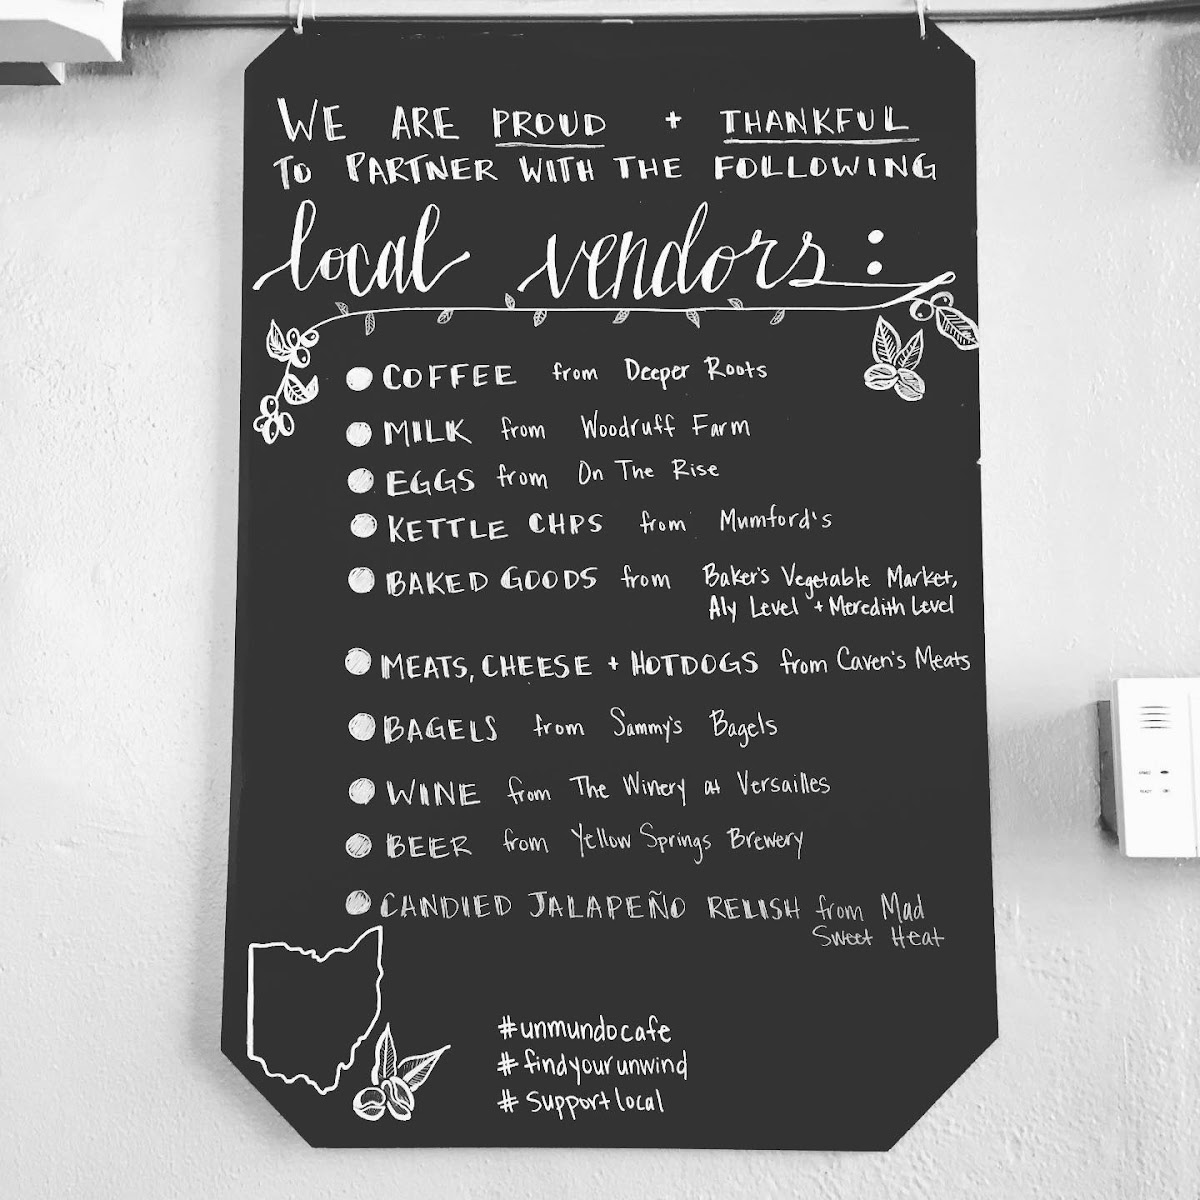 WE ARE PROUD + THANKFUL
TO PARTNER WITH THE FOLLOWING
local vendors:
COFFEE from Deeper Roots
MILK from Woodruff Farm
EGGS from On The Rise
KETTLE CHPS from Mumford's
BAKED GOODS from Baker's Vegetable Market,
Aly Level + Meredith Level
MEATS, CHEESE + HOTDOGS from Caven's Meats
BAGELS from Sammy's Bagels
WINE from The Winery at Versailles
BEER from Yellow Springs Brewery
CANDIED JALAPEÑO RELISH from Mad
Sweet Heat
#unmundocafe
#findyourunwind
#supportlocal